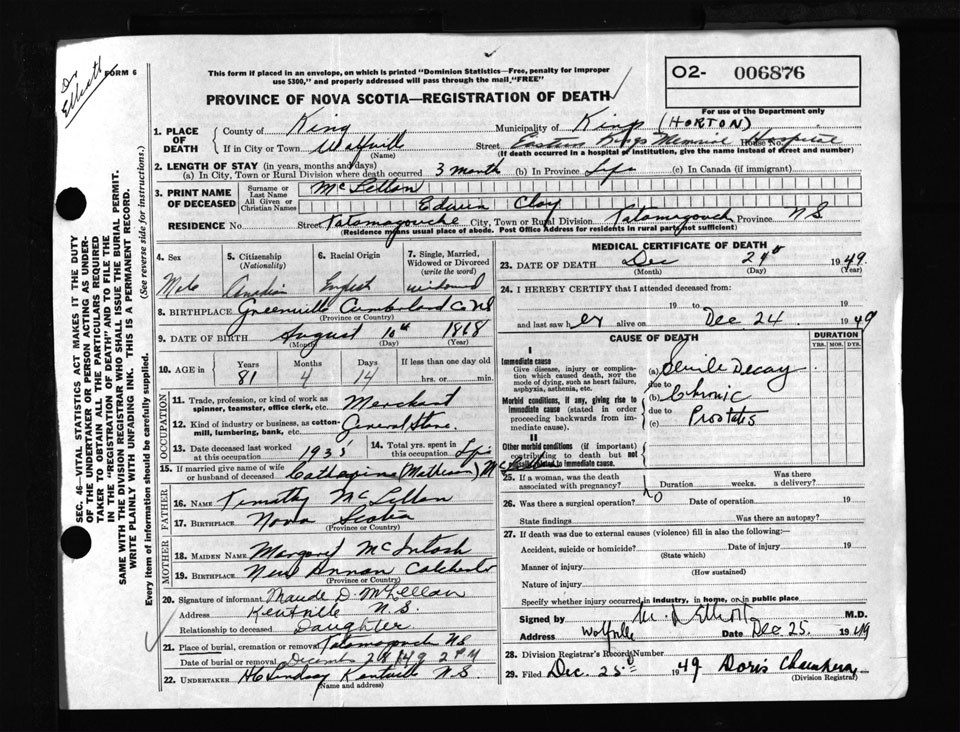 Dr Elliott
FORM 6
This form if placed in an envelope, on which is printed "Dominion Statistics—Free, penalty for improper
use $300," and properly addressed will pass through the mail "FREE"
O2- 006876
PROVINCE OF NOVA SCOTIA—REGISTRATION OF DEATH
For use of the Department only
1. PLACE OF DEATH
County of King Municipality of Kings (HORTON)
If in City or Town Wolfvill (Name) Street Eastern Kings Memorial Hospital House No.
(If death occurred in a hospital or institution, give the name instead of street and number)
2. LENGTH OF STAY (in years, months and days)
(a) In City, Town or Rural Division where death occurred 3 month (b) In Province Life (c) In Canada (if immigrant)
3. PRINT NAME OF DECEASED
Surname or Last Name McLellan
All Given or Christian Names Edwin Clay
RESIDENCE No. Street Tatamagouche City, Town or Rural Division Tatamagouch Province NS
(Residence means usual place of abode. Post Office Address for residents in rural parts not sufficient)
4. Sex Male
5. Citizenship (Nationality) Canadian
6. Racial Origin English
7. Single, Married, Widowed or Divorced (write the word) widowed
8. BIRTHPLACE Greenville Cumberland Co NS
(Province or Country)
9. DATE OF BIRTH August 10th 1868
(Month) (Day) (Year)
10. AGE in Years 81 Months 4 Days 14 If less than one day old
hrs. or min.
OCCUPATION
11. Trade, profession, or kind of work as spinner, teamster, office clerk, etc. Merchant
12. Kind of industry or business, as cotton-mill, lumbering, bank, etc. General Store
13. Date deceased last worked at this occupation 1935
14. Total yrs. spent in this occupation Life
15. If married give name of wife or husband of deceased Catharine (Matheson) McLellan
FATHER
16. NAME Timothy McLellan
17. BIRTHPLACE Nova Scotia
(Province or Country)
MOTHER
18. MAIDEN NAME Margaret McIntosh
19. BIRTHPLACE New Annan Colchester
(Province or Country)
20. Signature of informant Maude D. McLellan
Address Kentville N.S.
Relationship to deceased Daughter
21. Place of burial, cremation or removal Tatamagouch NS
Date of burial or removal December 28 /49
22. UNDERTAKER HC Lindsay Kentville N.S.
(Name and address)
MEDICAL CERTIFICATE OF DEATH
23. DATE OF DEATH Dec 24th 1949
(Month) (Day) (Year)
24. I HEREBY CERTIFY that I attended deceased from:
19 to 19
and last saw h alive on Dec 24 1949
CAUSE OF DEATH
DURATION
YRS. MOS. DYS.
I
Immediate cause
Give disease, injury or complication which caused death, NOT the mode of dying, such as heart failure, asphyxia, asthenia, etc.
(a) Senile Decay
due to
Morbid conditions, if any, giving rise to immediate cause (stated in order proceeding backwards from immediate cause).
(b) Chronic
due to
(c) Prostates
II
Other morbid conditions (if important) contributing to death but not causally related to immediate cause.
25. If a woman, was the death associated with pregnancy? Duration weeks. Was there a delivery?
26. Was there a surgical operation? no Date of operation 19
State findings Was there an autopsy?
27. If death was due to external causes (violence) fill in also the following:—
Accident, suicide or homicide? Date of injury 19
(State which)
Manner of injury
(How sustained)
Nature of injury
Specify whether injury occurred in industry, in home, or in public place
Signed by Elliott M.D.
Address Wolfville Date Dec 25. 1949
28. Division Registrar's Record Number
29. Filed Dec. 25 1949 Doris
(Division Registrar)
SEC. 46—VITAL STATISTICS ACT MAKES IT THE DUTY
OF THE UNDERTAKER OR PERSON ACTING AS UNDER-
TAKER TO OBTAIN ALL THE PARTICULARS REQUIRED
IN THE "REGISTRATION OF DEATH" AND TO FILE THE
SAME WITH THE DIVISION REGISTRAR WHO SHALL ISSUE THE BURIAL PERMIT.
WRITE PLAINLY WITH UNFADING INK. THIS IS A PERMANENT RECORD.
Every item of information should be carefully supplied. (See reverse side for instructions.)